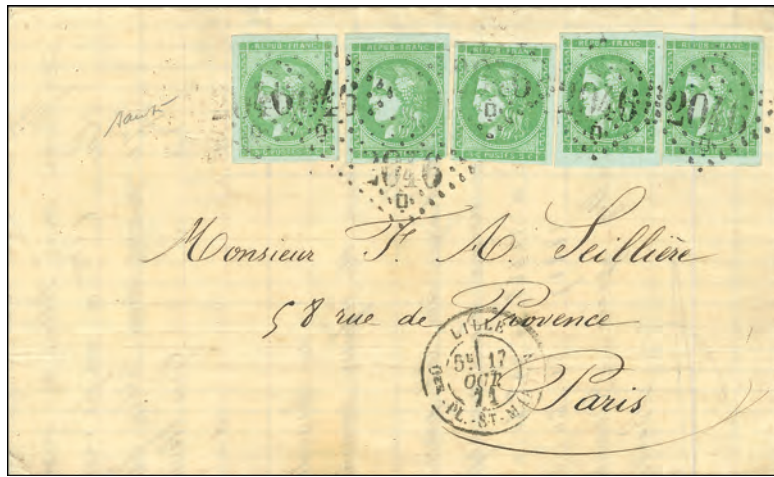 REPUB·FRANC REPUB·FRANC REPUB·FRANC REPUB·FRANC REPUB·FRANC
2046 2046
2046
Monsieur F. A. Seillière
58 rue de Provence
LILLE
5E 17
OCT
71
PL.-ST-M
Paris